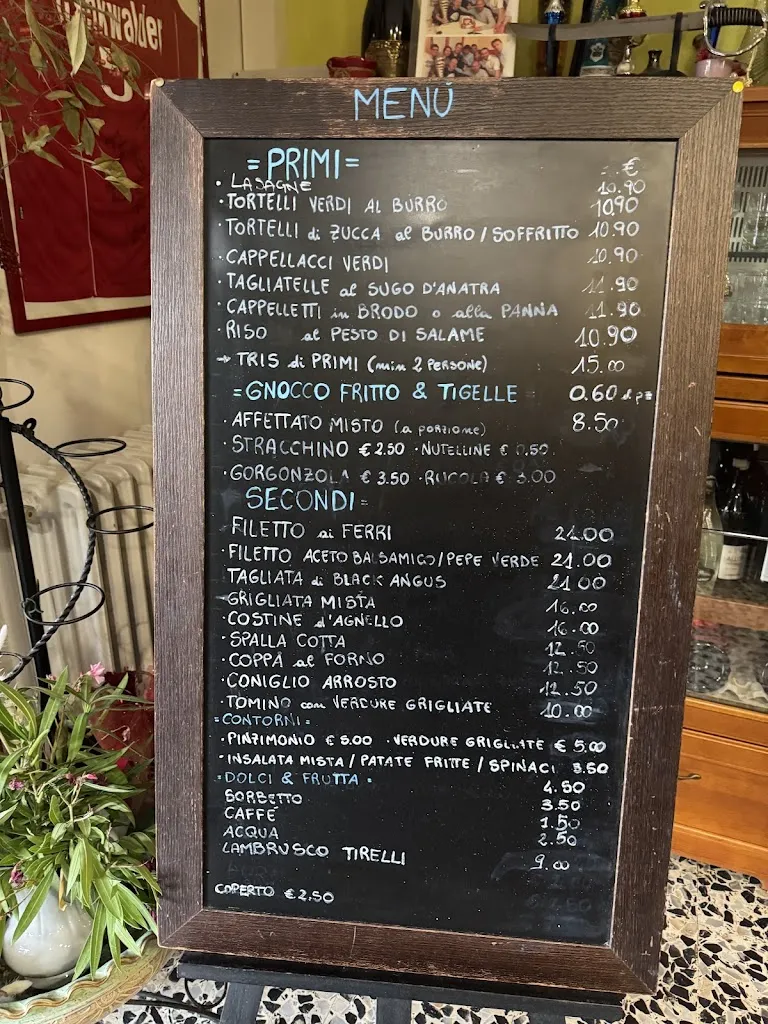 MENÙ
= PRIMI = €
• LASAGNE 10.90
• TORTELLI VERDI AL BURRO 10.90
• TORTELLI di ZUCCA al BURRO / SOFFRITTO 10.90
• CAPPELLACCI VERDI 10.90
• TAGLIATELLE al SUGO D'ANATRA 11.90
• CAPPELLETTI in BRODO o alla PANNA 11.90
• RISO al PESTO DI SALAME 10.90
→ TRIS di PRIMI (min 2 PERSONE) 15.00
= GNOCCO FRITTO & TIGELLE 0.60 al pz
• AFFETTATO MISTO (a porzione) 8.50
• STRACCHINO € 2.50 • NUTELLINE € 0.50
• GORGONZOLA € 3.50 • RUCOLA € 3.00
SECONDI =
• FILETTO ai FERRI 21.00
• FILETTO ACETO BALSAMICO/PEPE VERDE 21.00
TAGLIATA di BLACK ANGUS 21.00
GRIGLIATA MISTA 16.00
• COSTINE d'AGNELLO 16.00
• SPALLA COTTA 12.50
• COPPA al FORNO 12.50
• CONIGLIO ARROSTO 12.50
• TOMINO con VERDURE GRIGLIATE 10.00
= CONTORNI =
• PINZIMONIO € 5.00 • VERDURE GRIGLIATE € 5.00
• INSALATA MISTA / PATATE FRITTE / SPINACI 3.50
= DOLCI & FRUTTA = 4.50
SORBETTO 3.50
CAFFÈ 1.50
ACQUA 2.50
LAMBRUSCO TIRELLI 9.00
COPERTO € 2.50